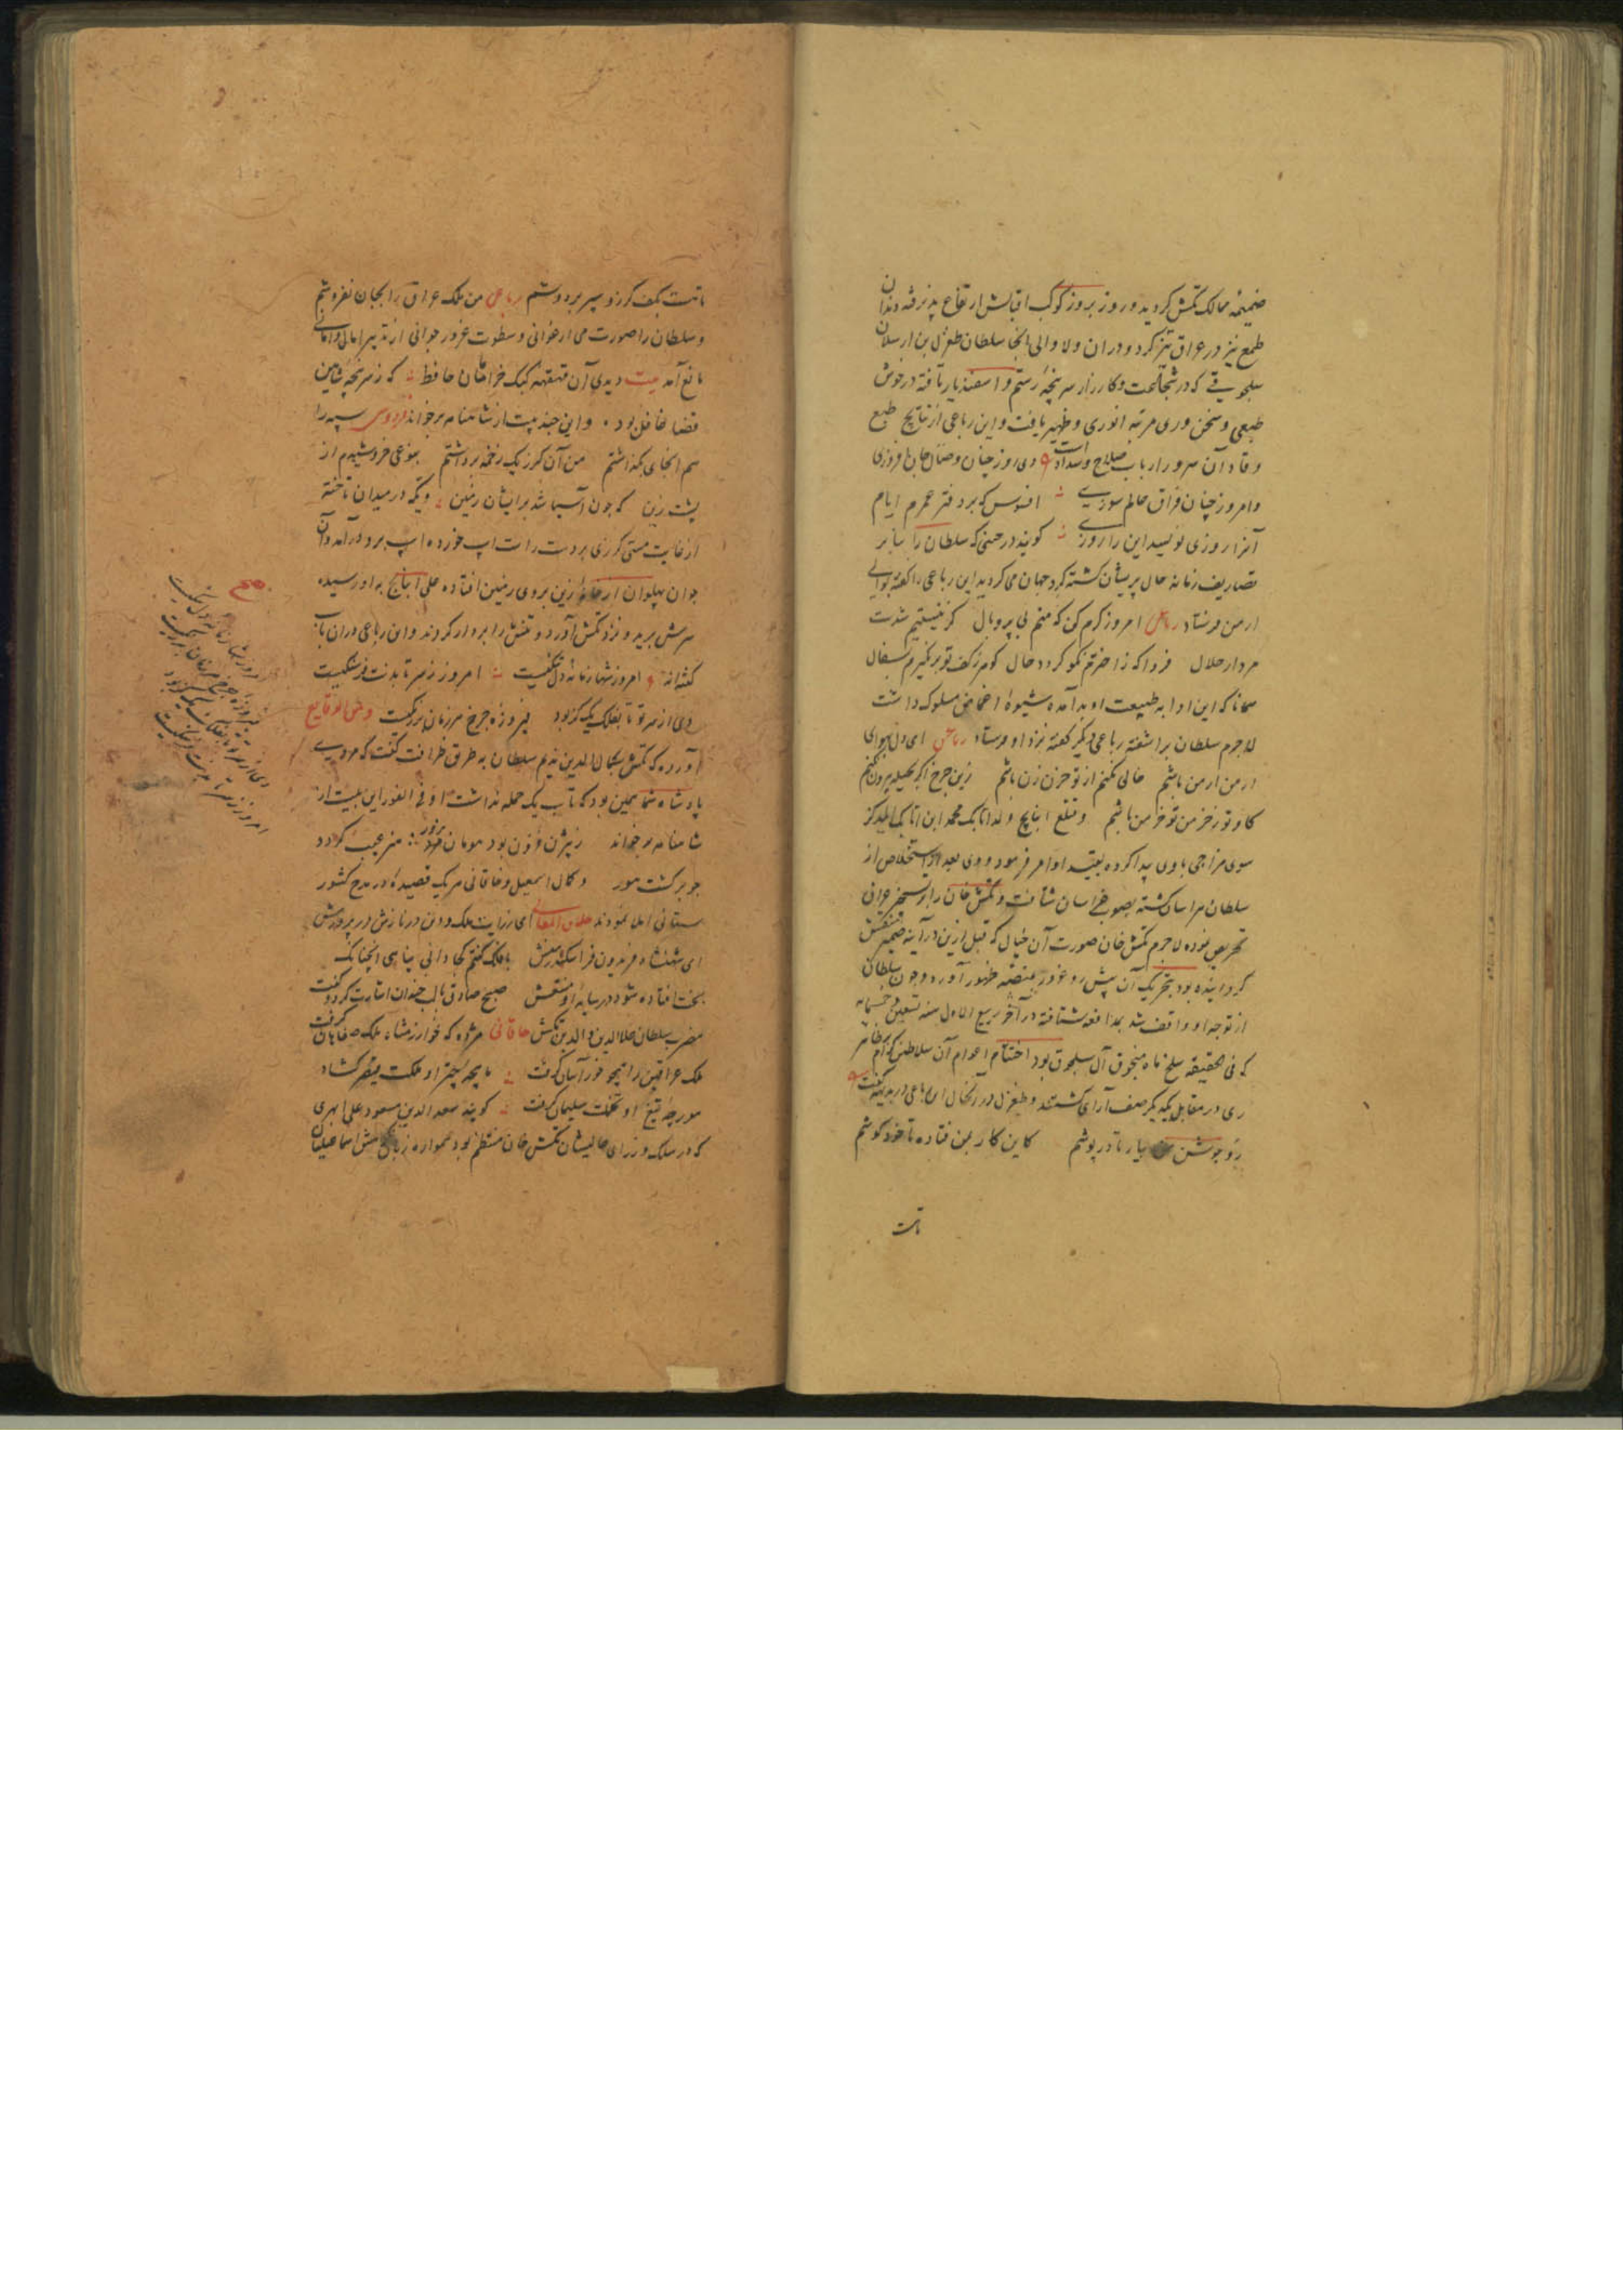 ضمیمهٔ ممالک تکش کردید و روز بروز کوکب اقبالش ارتفاع پذیرفته دندان
طمع نیز در عراق تیز کرد و در ان ولا والی انجا سلطان طغرل بن ارسلان
سلجوقی که در شجاعت و کارزار سرپنجهٔ رستم و اسفندیار تافته در خوش
طبعی و سخن وری مرتبه انوری و ظهیر یافت و این رباعی از نتایج طبع
وقاد آن سرور ارباب صلاح و سداد است دی روز چنان وصال جان افروزی
و امروز چنان فراق عالم سوزی افسوس که بر دفتر عمرم ایام
آنرا روزی نویسد این را روزی کویند در حینی که سلطان را بنابر
تصاریف زمانه حال پریشان کشته کرد جهان می کردید این رباعی را کفته بوالی
ارمن فرستاد رباعی امروز کرم کن که منم بی پر و بال کز نیستیم شدست
مردار حلال فردا که ز اخترم نکو کردد حال کوهر ز کف تو برنکیرم بسفال
همانا که این ادا به طبیعت او بد آمده شیوهٔ اغماض مسلوک داشت
لاجرم سلطان برآشفته رباعی دیکر کفته نزد او فرستاد رباعی ای دل بهوای
ارمن ار من باشم خالی نکنم از تو حزن زن باشم زین چرخ اکر بحیله بیرون نکنم
کاو تو ز خرمن تو خر من باشم و قتلغ اینانج ولد اتابک محمد ابن اتابک ایلدکز
سوی مزاجی باوی پیدا کرده بقید او امر فرمود و وی بعد از استخلاص از
سلطان هراسان کشته بصوب خراسان شتافت و تکش خان را بر تسخیر عراق
تحریص نموده لاجرم تکش خان صورت آن خیال که قبل ازین در آینه ضمیر منتقش
کردانیده بود بتحریک آن پیش رو غرور بمنصه ظهور آورد و چون سلطان
از توجه او واقف شد بمدافعه شتافته در آخر ربیع الاول سنه تسعین و خمسمایه
که فی الحقیقه سلخ ماه منجوق آل سلجوق بود اختتام اعوام آن سلاطین کرام بظاهر
ری در مقابل یکدیکر صف آرای کشتند و طغرل در آنحال این رباعی در بدیهه کفت
رو جوشن من بیار تا درپوشم کاین کار بمن فتاده تا خود کوشم
تاست
تاست بکف کرز و سپر بر دوشم رباعی من ملک عراق را بجان نفروشم
و سلطان را صورت می ارغوانی و سطوت غرور جوانی از تدبیر امانی و امانی
مانع آمد بیت دیدی آن قهقهه کبک خرامان حافظ که ز سرپنجه شاهین
قضا غافل بود و این چند بیت از شاهنامه برخواند فردوسی سپه را
هم انجای بکذاشتم من آن کرز یک زخم برداشتم بنوعی خروشیدم از
پشت زین که چون آسیا شد بر ایشان زمین و یکه در میدان تاخته
از غایت مستی کرزی بر دست راست اسپ خورده اسپ برو درآمد و آن
جوان پهلوان از خانهٔ زین بروی زمین افتاده علی اینانج به او رسیده
سرش برید و نزد تکش آورد و تنش را بر دار کردند و این رباعی در ان باب
کفته اند امروز شها زمانه دل تنکیست امروز ز سر تا بدنت فرسنکیست
دی از سر تو تا بفلک یک کز بود فیروزه چرخ هر زمان بر رنکیست و من الوقایع
آورده که تکش بکمال الدین ندیم سلطان به طریق ظرافت کفت که مردی
پادشاه شما همین بود که تاب یک حمله نداشت او فی الفور این بیت از
شاهنامه برخواند ز بیژن فزون بود هومان بزور هنر عیب کردد
چو برکشت هور و کمال اسمعیل و خاقانی هر یک قصیده در مدح کشور
ستانی املا نمودند خلاق المعانی ای ز رایت ملک و دین در نازش و در پرورش
ای شهنشاه فریدون فر اسکندر منش با فلک کفتم کجا دانی پناهی انچنانک
بخت افتاده شود در سایهٔ او منتعش صبح صادق بالب خندان اشارت کرد و کفت
حضرت سلطان علاالدین و الدین تکش خاقانی مژده که خوارزمشاه ملک صفاهان کرفت
ملک عراقین را همچو خراسان کرفت ماهچهٔ چتر او مملکت قیصر کشاد
مورچهٔ تیغ او تخت سلیمان کرفت کویند سعد الدین مسعود علی ابهری
که در سلک وزرای عالیشان تکش خان منتظم بود همواره اسماعیلیان
صح
امروز شها زمانه دل تنکیست
فیروزه چرخ هر زمان بر رنکیست
دی از سر تو تا بفلک یک کز بود
امروز ز سر تا بدنت فرسنکیست